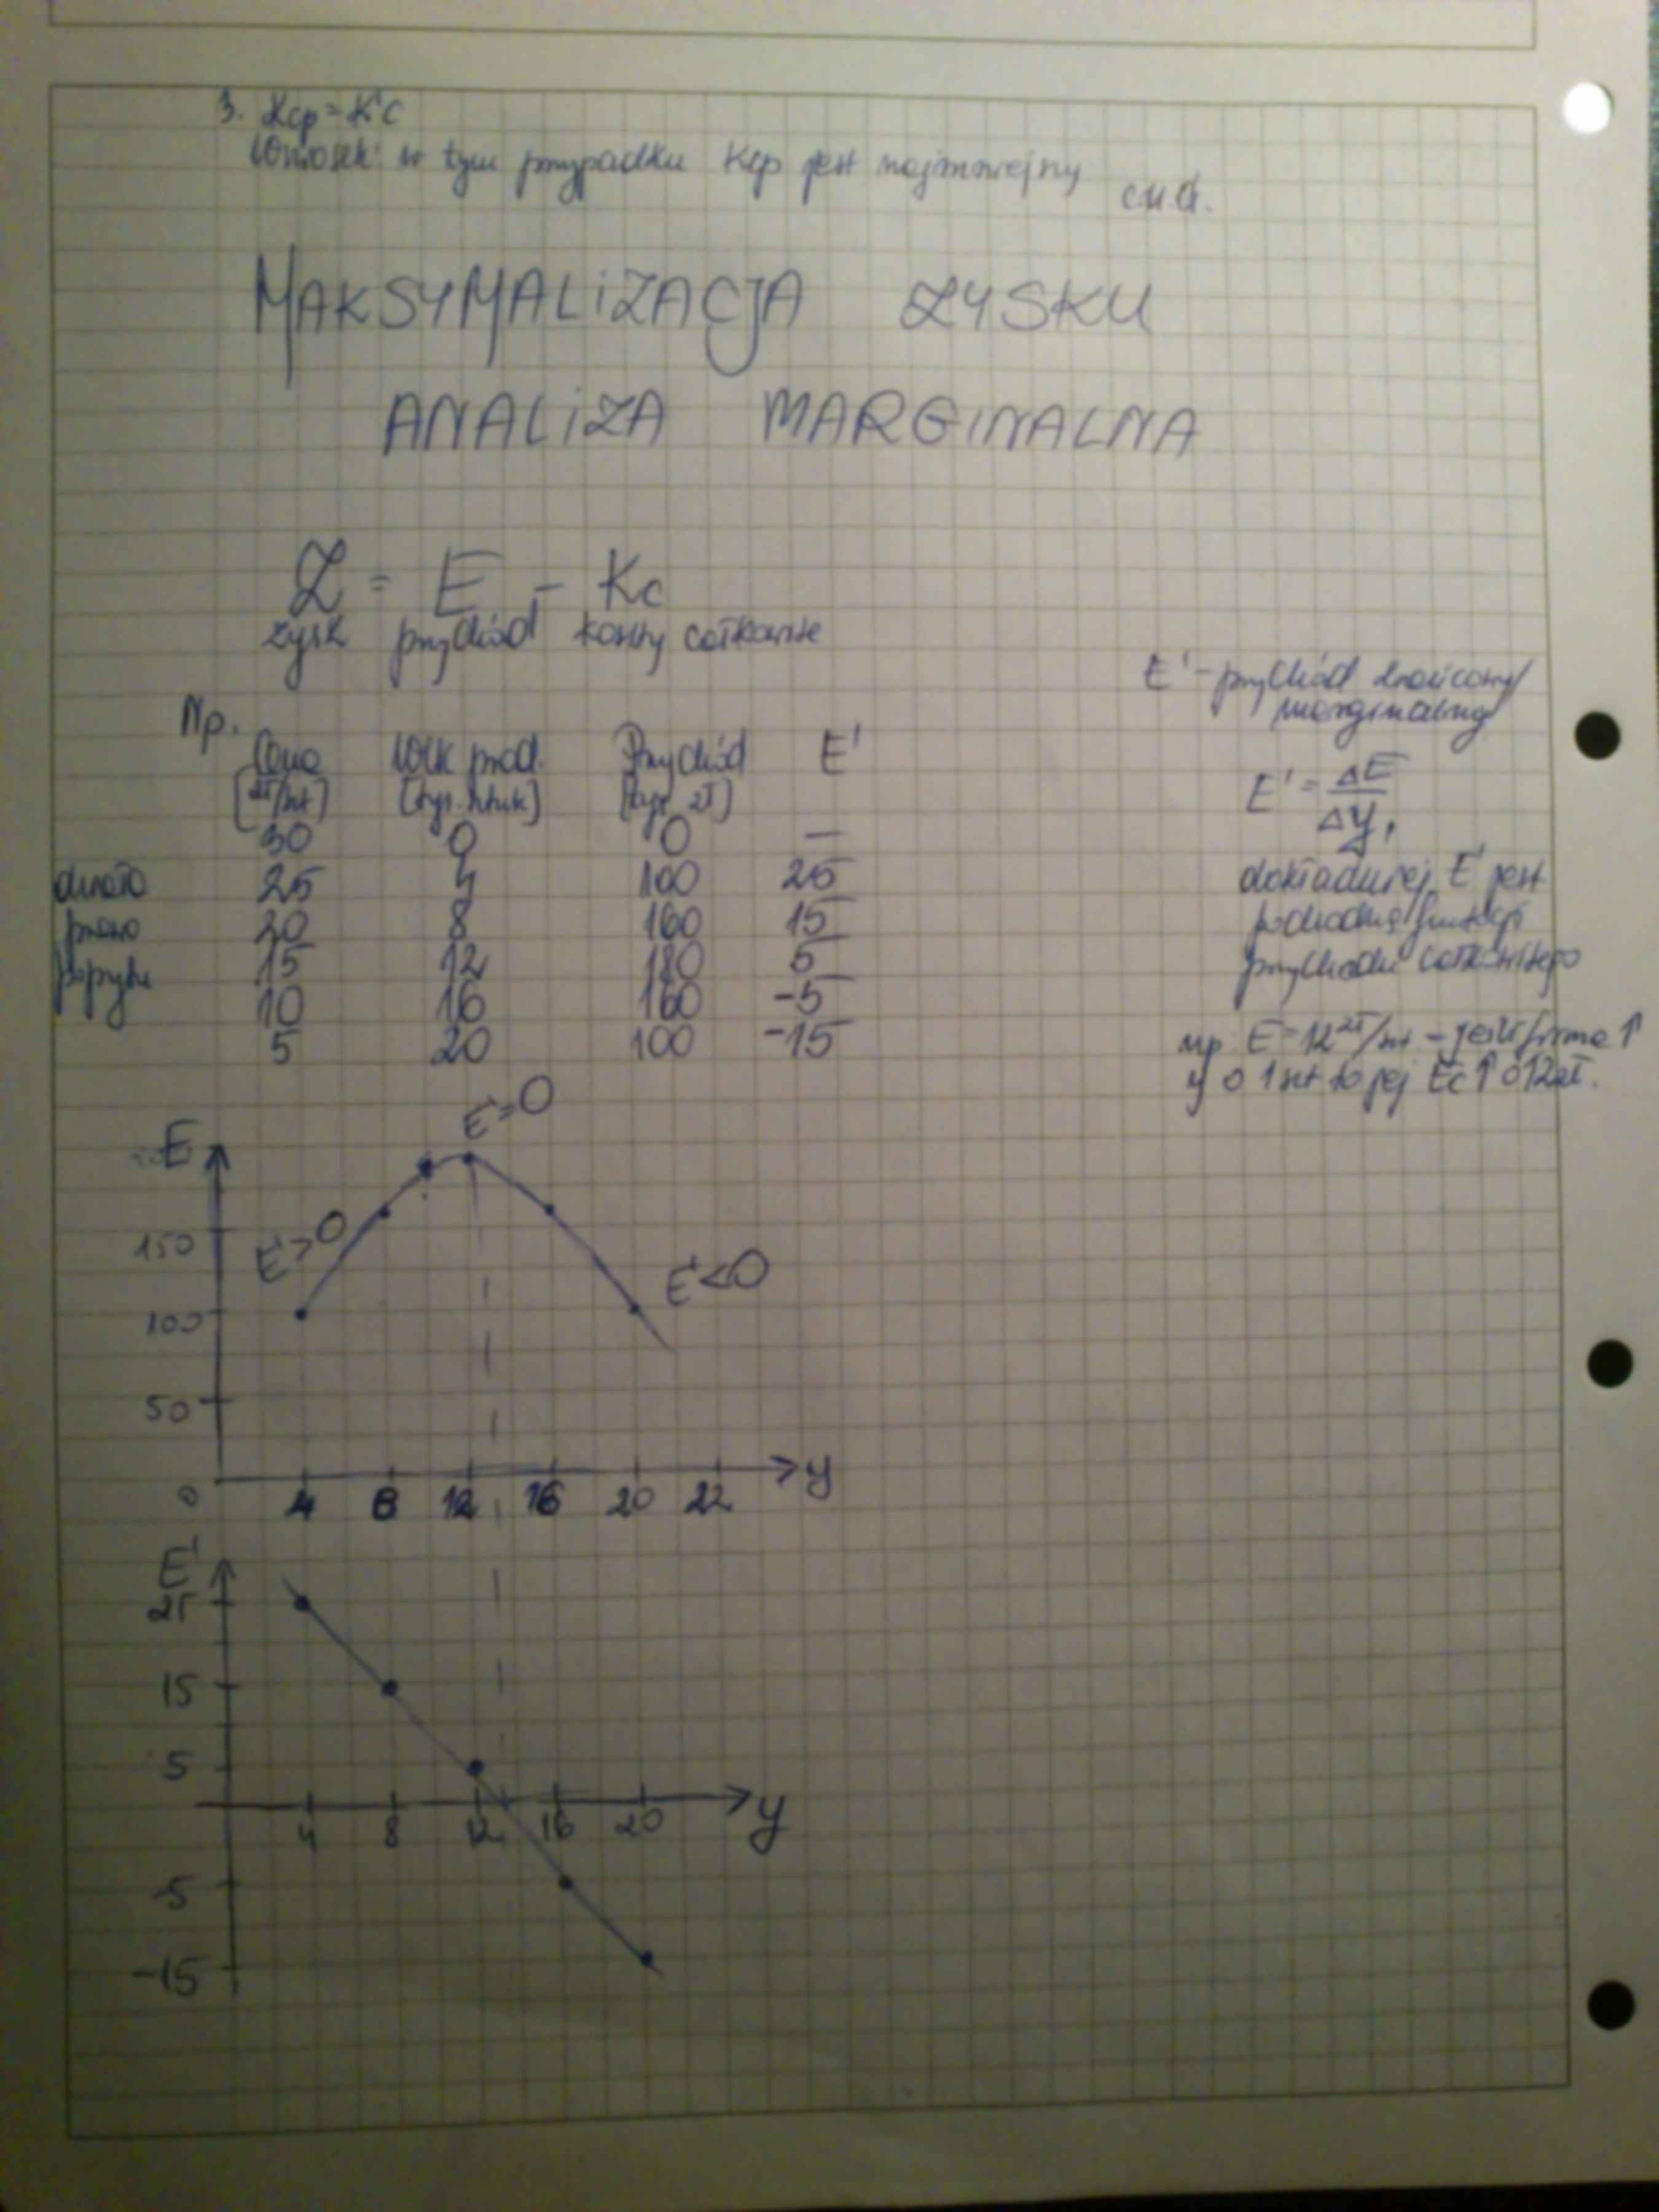 3. Kcp = K'c
Wniosek: w tym przypadku Kcp jest najmniejszy c.n.d.
MAKSYMALIZACJA ZYSKU
ANALIZA MARGINALNA
Z = E - Kc
zysk przychód koszty całkowite
E' - przychód krańcowy/
marginalny
E' = ΔE/Δy,
dokładniej E' jest
pochodną funkcji
przychodu całkowitego
np. E' = 12 zł/szt - jeśli firma ↑
y o 1 szt to jej Ec ↑ o 12 zł.
Np.
Cena Wlk prod. Przychód E'
[zł/szt] [tys. sztuk] [tys. zł]
30 0 0 —
25 4 100 25
20 8 160 15
15 12 180 5
10 16 160 -5
5 20 100 -15
działa
prawo
popytu
E
E'=0
E'>0
E'<0
150
100
50
0 4 8 12 16 20 22 y
E'
25
15
5
4 8 12 16 20 y
-5
-15